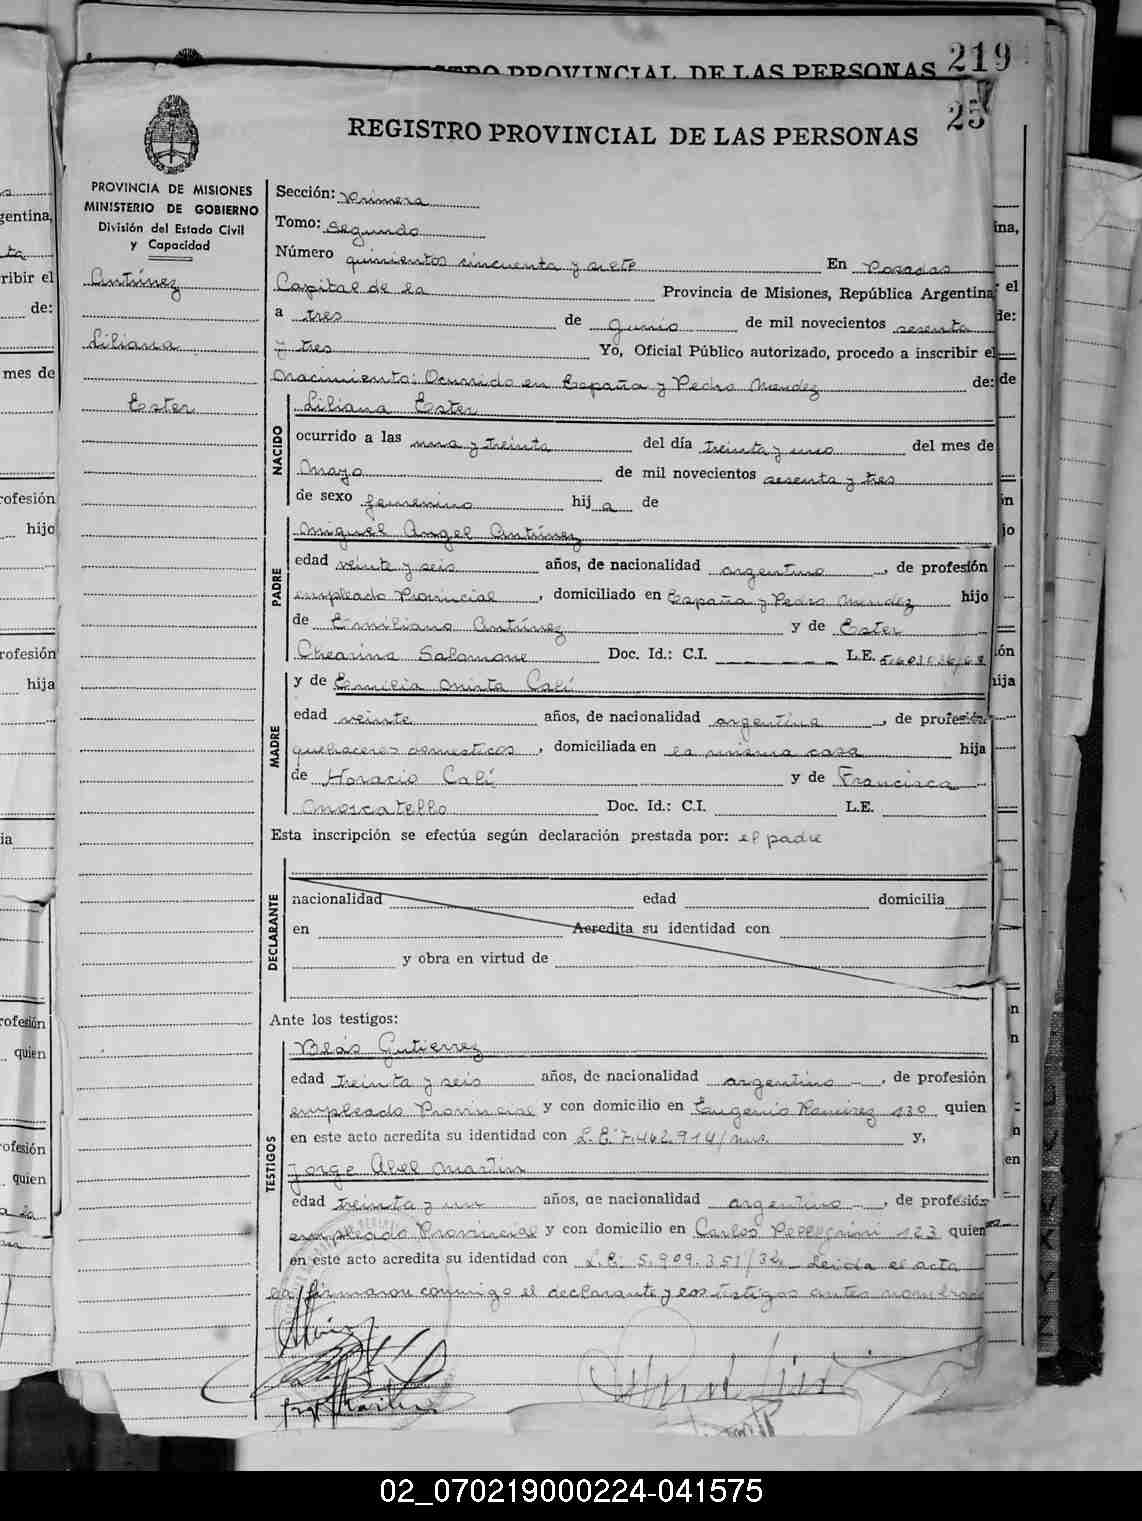 STRO PROVINCIAL DE LAS PERSONAS 219
25
REGISTRO PROVINCIAL DE LAS PERSONAS
PROVINCIA DE MISIONES
MINISTERIO DE GOBIERNO
División del Estado Civil
y Capacidad
Antúnez
Liliana
Ester
Sección: Primera
Tomo: Segundo
Número quinientos cincuenta y siete En Posadas
Capital de la Provincia de Misiones, República Argentina
a tres de Junio de mil novecientos sesenta
y tres Yo, Oficial Público autorizado, procedo a inscribir el
Nacimiento: Ocurrido en España y Pedro Mendez de:
NACIDO
Liliana Ester
ocurrido a las una y treinta del día treinta y uno del mes de
Mayo de mil novecientos sesenta y tres
de sexo femenino hij a de
PADRE
Miguel Angel Antúnez
edad veinte y seis años, de nacionalidad argentino, de profesión
empleado Provincial, domiciliado en España y Pedro Mendez hijo
de Emiliano Antúnez y de Ester
Salamone Doc. Id.: C.I. L.E.
MADRE
y de Emilia Mirta Calí
edad veinte años, de nacionalidad argentina, de profesión
quehaceres domesticos, domiciliada en la misma casa hija
de Horacio Calí y de Francisca
Moscatello Doc. Id.: C.I. L.E.
Esta inscripción se efectúa según declaración prestada por: el padre
DECLARANTE
nacionalidad edad domicilia
en Acredita su identidad con
y obra en virtud de
Ante los testigos:
TESTIGOS
Blás Gutierrez
edad treinta y seis años, de nacionalidad argentino, de profesión
empleado Provincial y con domicilio en Eugenio Ramirez 130 quien
en este acto acredita su identidad con L.E. 7.462.914/ y,
Jorge Abel Martin
edad treinta y un años, de nacionalidad argentino, de profesión
empleado Provincial y con domicilio en Carlos Pellegrini 123 quien
en este acto acredita su identidad con L.E. 5.909.351/32. Leida el acta
la firmaron conmigo el declarante y los testigos antes nombrados
02_070219000224-041575